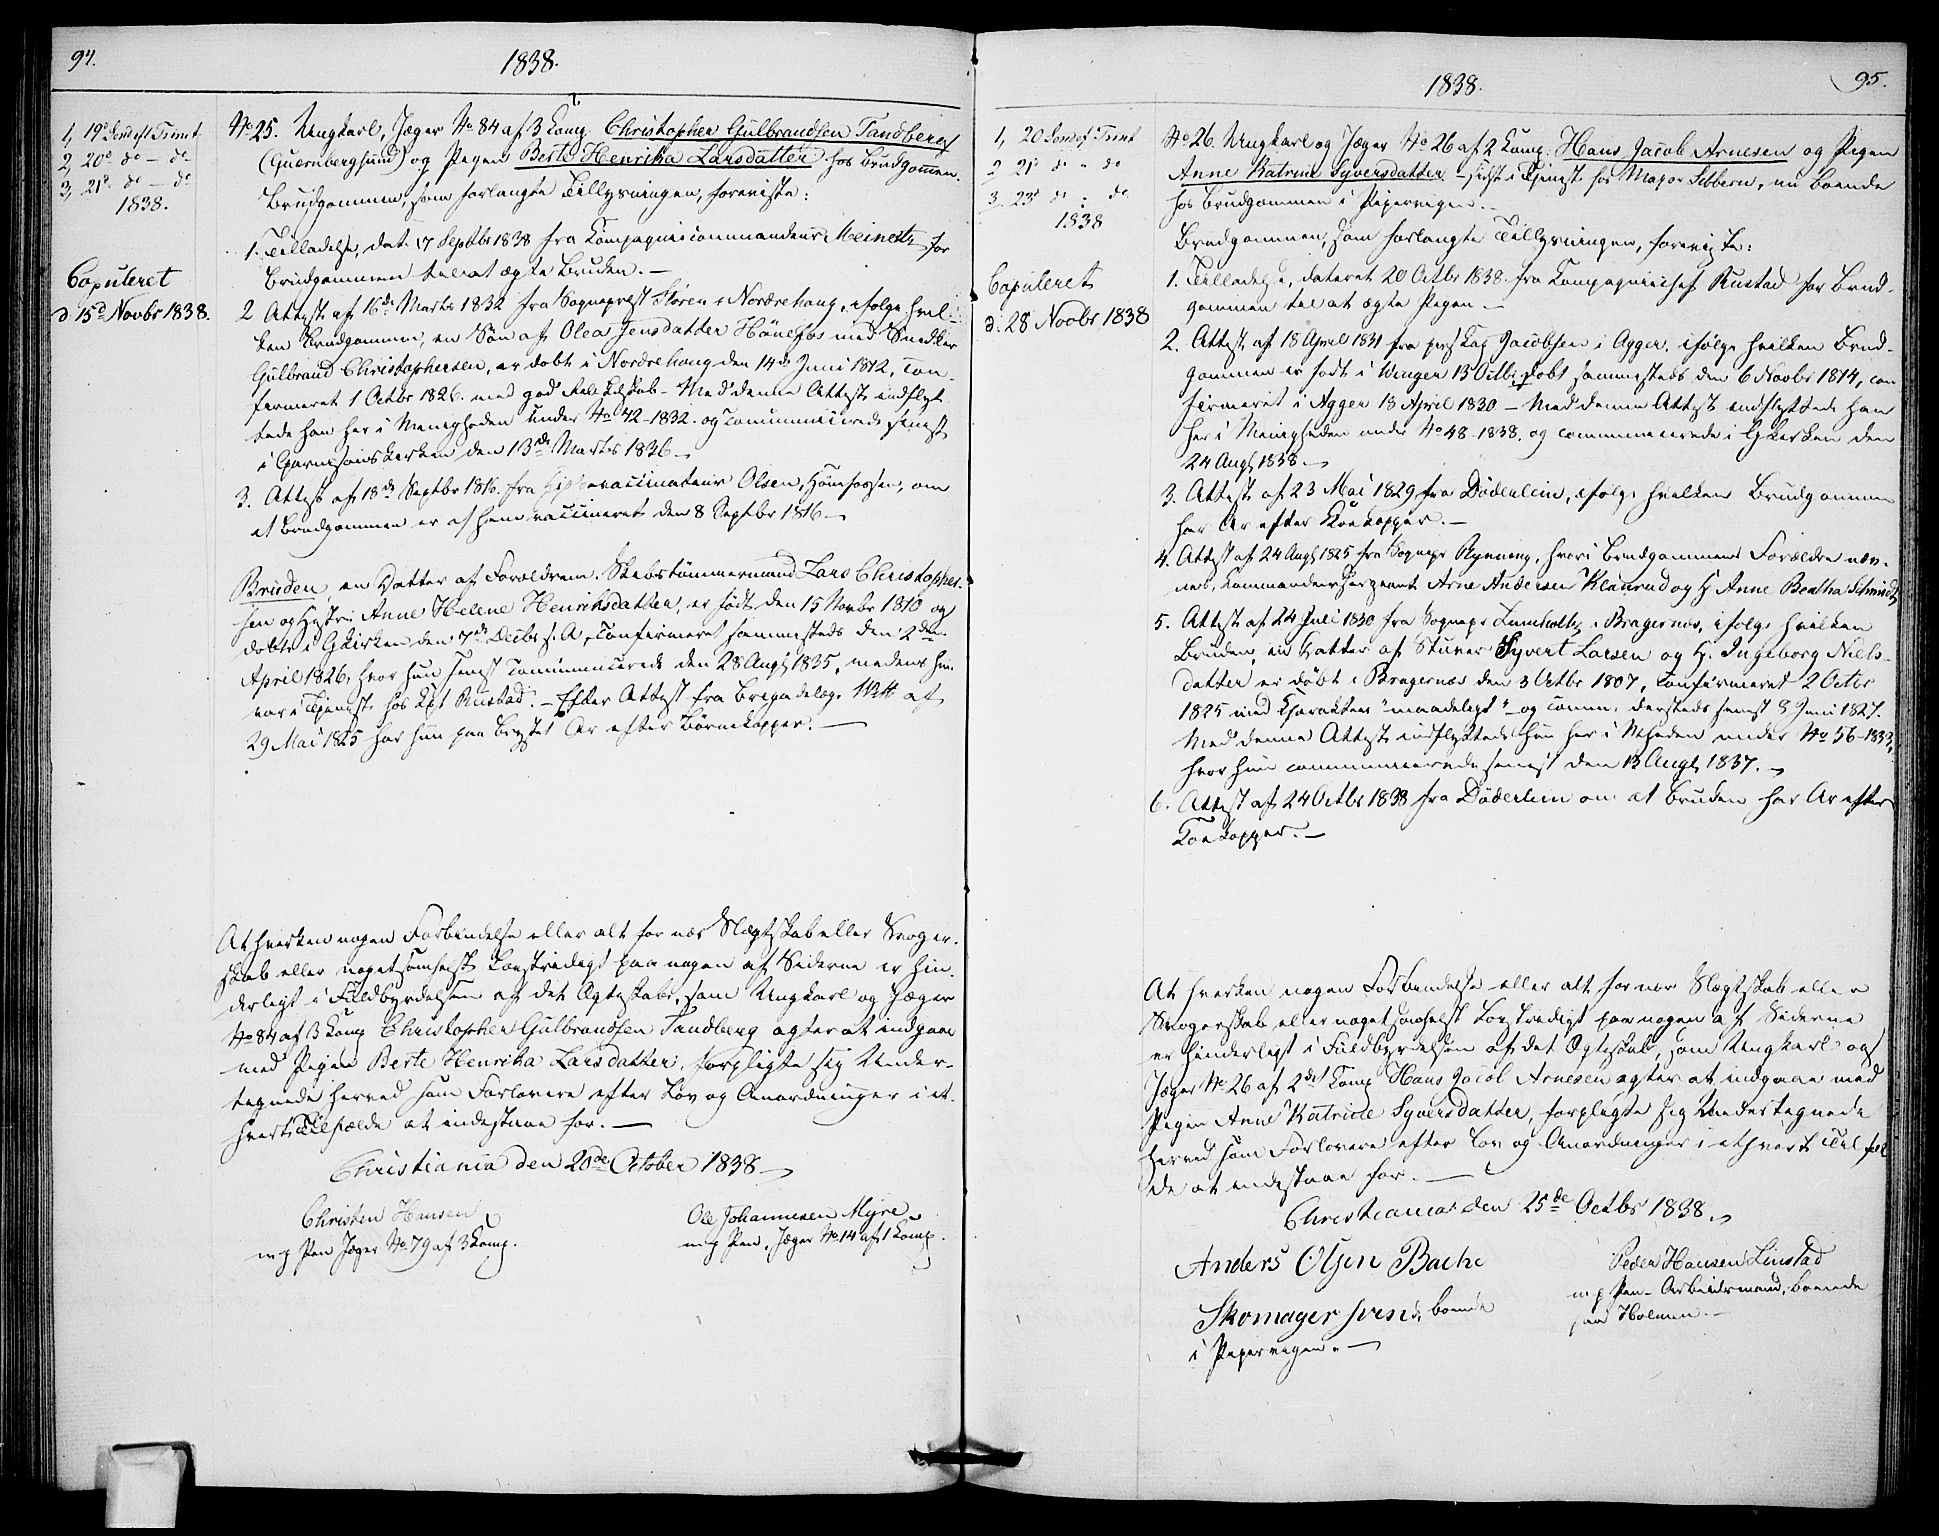 94.
1838.
1, 19de Sønd efl Trinit
2, 20de do — do
3, 21de do — do
1838.
Copuleret
d 15de Novbr 1838.
No 25. Ungkarl, Jæger No 84 af 3 Komp. Christopher Gulbrandsen Tandberg
(Guernberghund) og Pigen Berte Henrika Larsdatter hos Brudgommen.
Brudgommen, som forlangte Tillysningen, foreviste:
1. Tilladelse, dat. 17 Septbr 1838 fra Kompagniecommandeur Meinertz for
Brudgommen til at ægte Bruden. —
2 Attest af 16de Marts 1832 fra Sogneprest Støren i Nordrehoug, ifølge hvil-
ken Brudgommen, en Søn af Olea Jensdatter Hønefos med Snedker
Gulbrand Christophersen, er døbt i Nordrehoug den 14de Juni 1812, con-
firmeret 1 Octbr 1826 med god Kundskab — Med denne Attest indflyt-
tede han her i Menigheden under No 42-1832. og communicerede senest
i Garnisonskirken den 13de Marts 1836 —
3. Attest af 18de Septbr 1816. fra Hjelpevaccinateur Olsen, Hønefossen, om
at Brudgommen er af ham vaccineret den 8 Septbr 1816 —
Bruden en Datter af Forældrene: Skibstømmermand Lars Christopher-
sen og Hustru Anne Helene Henriksdatter, er født den 15 Novbr 1810 og
døbt i Gkirken den 7de Decbr s. A, confirmeret sammesteds den 2den
April 1826, hvor hun senest communicerede den 28 Augst 1835, medens hun
var i Tjeneste hos Kpt Rustad. — Efter Attest fra Brigadelæge Witt af
29 Mai 1825 har hun paa Brystet Ar efter Børnekopper. —
At hverken nogen Forbindelse eller alt for nær Slægtskab eller Svoger-
skab eller nogetsomhelst Lovstridigt paa nogen af Siderne er hin-
derligt i Fuldbyrdelsen af det Ægteskab, som Ungkarl og Jæger
No 84 af 3 Komp Christopher Gulbrandsen Tandberg agter at indgaae
med Pigen Berte Henrika Larsdatter, forpligte sig Under-
tegnede herved som Forlovere efter Lov og Anordninger i et-
hvert Tilfælde at indestaae for. —
Christiania den 20de October 1838 —
Christen Hansen
m p Pen Jæger No 79 af 3 Komp.
Ole Johannesen Myre
m p Pen, Jæger No 14 af 1 Komp.
1838.
95.
1, 20 Sønd ef Trinit
2 21 do " do
3. 23d do " do
1838
Copuleret
d. 28 Novbr 1838
No 26. Ungkarl og Jæger No 26 af 2 Komp. Hans Jacob Arnesen og Pigen
Anne Katrine Syversdatter — sidst i Tjenest hos Major Sibbern, nu boende
hos Brudgommen i Pipervigen. —
Brudgommen, som forlangte Tillysningen, foreviste:
1. Tilladelse, dateret 20 Octbr 1838 fra Kompagniechef Rustad for Brud-
gommen til at ægte Pigen —
2. Attest af 18 April 1831 fra pers Kap Jacobsen i Agger, ifølge hvilken Brud-
gommen er født i Vinger 13 Octbr, døbt sammesteds den 6 Novbr 1814, con
firmeret i Agger 18 April 1830 — Med denne Attest indflyttede han
her i Menigheden under No 48-1838. og communicerede i Gkirken den
24 Augst 1838. —
3. Attest af 23 Mai 1829 fra Døderlein, ifølge hvilken Brudgommen
har Ar efter Koekopper. —
4. Attest af 24 Augst 1825 fra Sognepr Rynning, hvori Brudgommens Forældre næv-
nes, Kommandeersergeant Arne Andersen Klanrud og H. Anne Beatha Schmidt
5. Attest af 24 Juli 1830 fra Sognepr Lumholtz i Bragernæs, ifølge hvilken
Bruden, en Datter af Stuver Syvert Larsen og H. Ingeborg Niels-
datter er døbt i Bragernæs den 3 Octbr 1807, confirmeret 2 Octbr
1825 med Charakter "maadeligt" — og comm. dersteds senest 8 Juni 1827.
Med denne Attest indflyttede hun her i Mheden under No 56-1833,
hvor hun communicerede senest den 13 Augst 1837. —
6. Attest af 24 Octbr 1838 fra Døderlein om at Bruden har Ar efter
Koekopper. —
At hverken nogen Forbindelse eller alt for nær Slægtskab eller
Svogerskab eller nogetsomhelst Lovstridigt paa nogen af Siderne
er hinderligt i Fuldbyrdelsen af det Ægteskab, som Ungkarl og
Jæger No 26 af 2det Komp Hans Jacob Arnesen agter at indgaae med
Pigen Anne Katrine Syversdatter, forpligte sig Undertegnede
herved som Forlovere efter Lov og Anordninger i ethvert Tilfæl
de at indestaae for. —
Christiania den 25de Octbr 1838.
Anders Olsen Bache
Skomager Svend, boende
i Pipervigen. —
Peder Hansen Linstad
m p Pen — Arbeidsmand, boende
paa Holmen. —